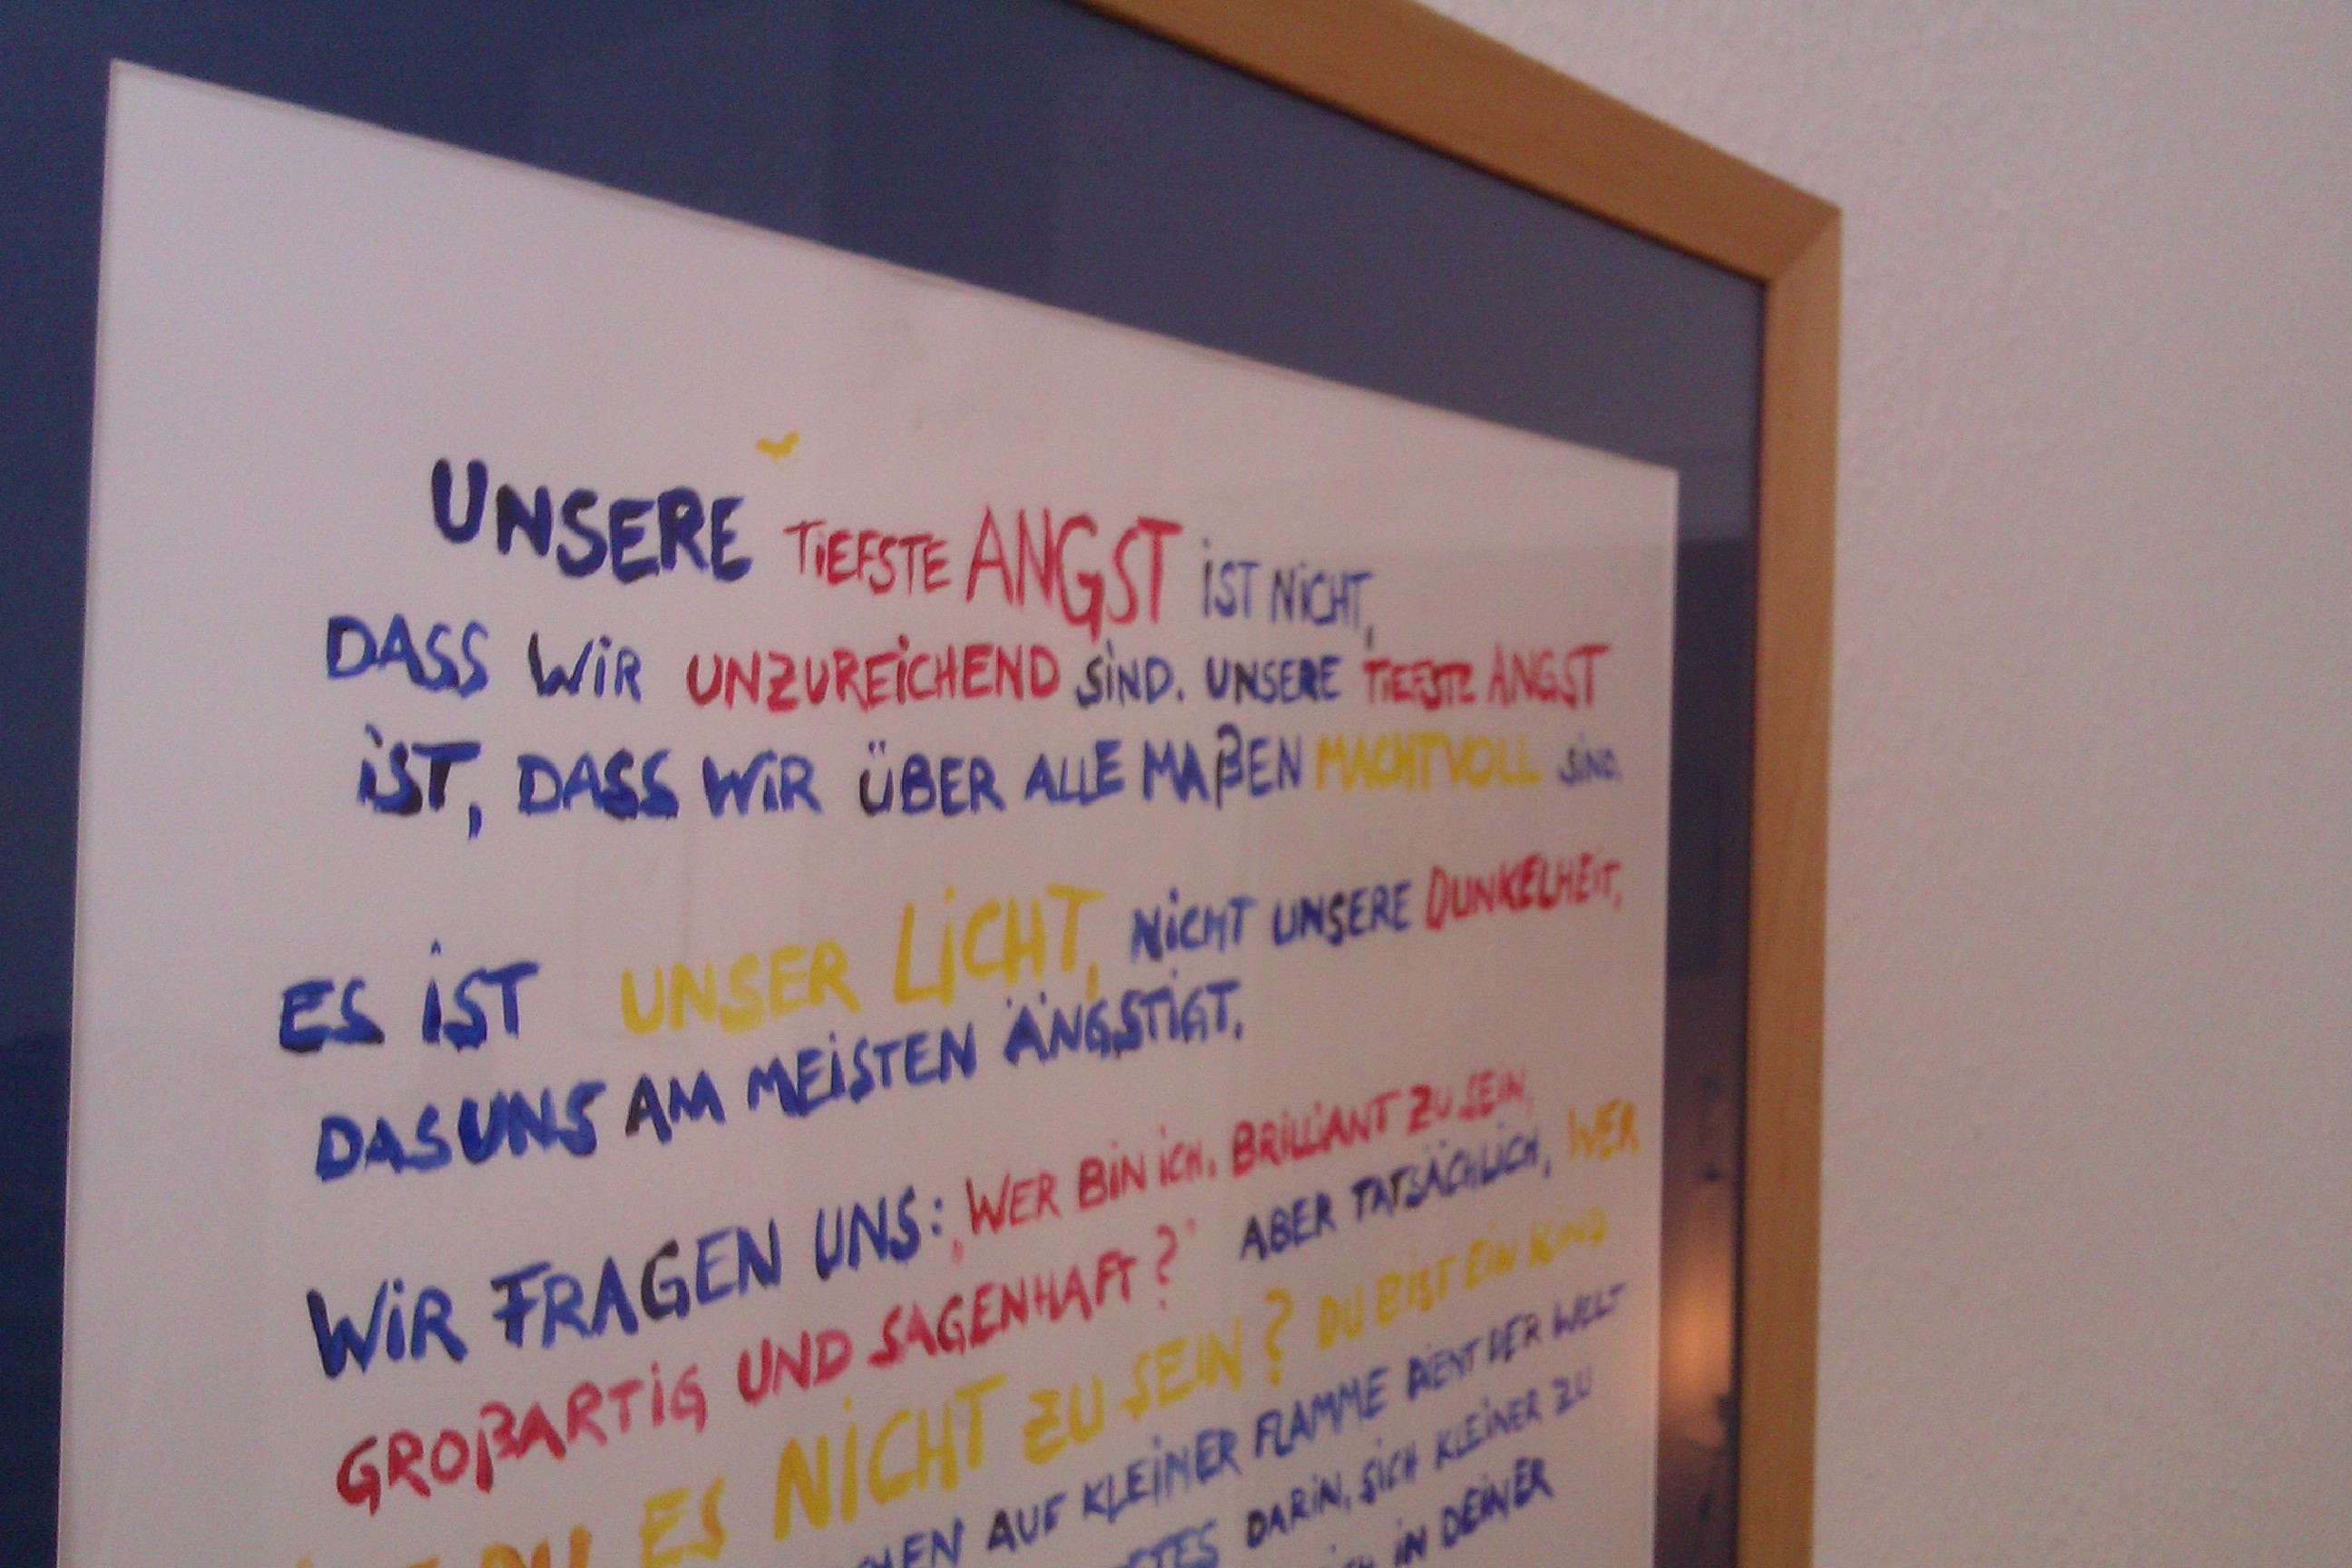 UNSERE TIEFSTE ANGST IST NICHT,
DASS WIR UNZUREICHEND SIND. UNSERE TIEFSTE ANGST
IST, DASS WIR ÜBER ALLE MAßEN MACHTVOLL SIND.
ES IST UNSER LICHT, NICHT UNSERE DUNKELHEIT,
DAS UNS AM MEISTEN ÄNGSTIGT.
WIR FRAGEN UNS: „WER BIN ICH, BRILLIANT ZU SEIN,
GROßARTIG UND SAGENHAFT?" ABER TATSÄCHLICH, WER
DU ES NICHT ZU SEIN? DU BIST EIN KIND
AUF KLEINER FLAMME DIENT DER WELT
DARIN, SICH KLEINER ZU
IN DEINER